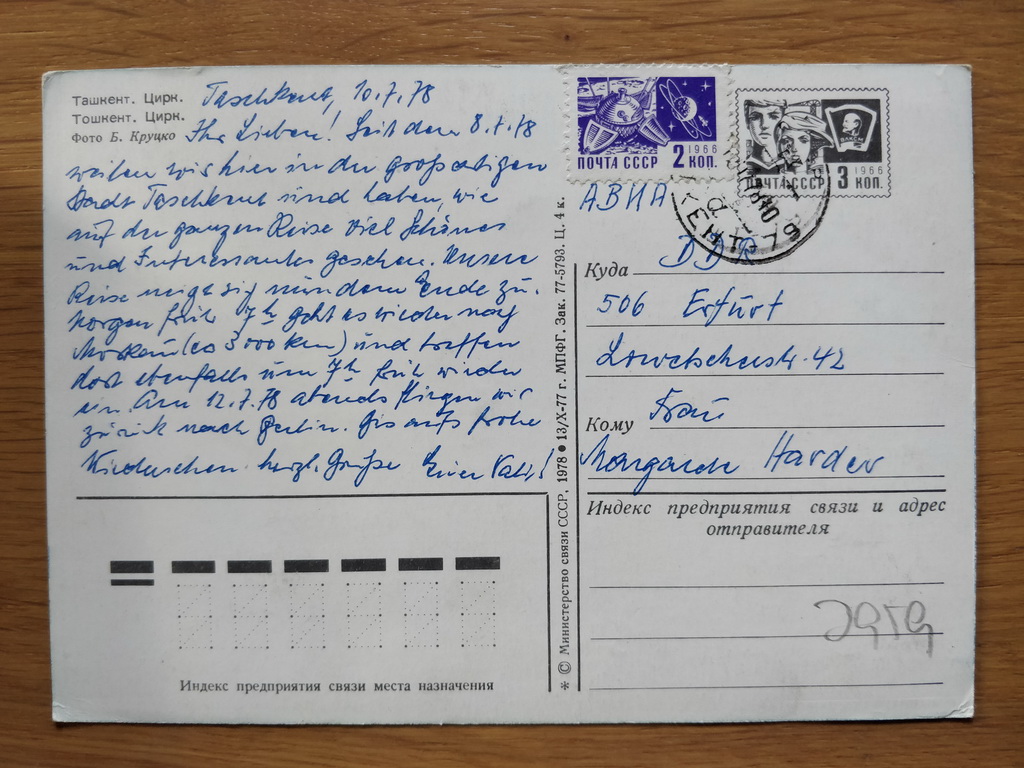 Ташкент. Цирк.
Тошкент. Цирк.
Фото Б. Круцко
Taschkent, 10.7.78
Ihr Lieben! Seit dem 8.7.78
weilen wir hier in der großartigen
Stadt Taschkent und haben, wie
auf der ganzen Reise viel Schönes
und Interessantes gesehen. Unsere
Reise neigt sich nun dem Ende zu.
Morgen früh 7h geht es wieder nach
Moskau (ca 3000 km) und treffen
dort ebenfalls um 7h früh wieder
ein. Am 12.7.78 abends fliegen wir
zurück nach Berlin. Bis aufs frohe
Wiedersehen herzl. Grüße Euer
Индекс предприятия связи места назначения
* © Министерство связи СССР, 1978 ● 13/X-77 г. МПФГ. Зак. 77-5793. Ц. 4 к.
1966
ПОЧТА СССР 2 КОП.
ВЛКСМ
1966
ПОЧТА СССР 3 КОП.
АВИА
Куда DDR
506 Erfurt
Lowetscherstr. 42
Кому Frau
Margarete Harder
Индекс предприятия связи и адрес
отправителя